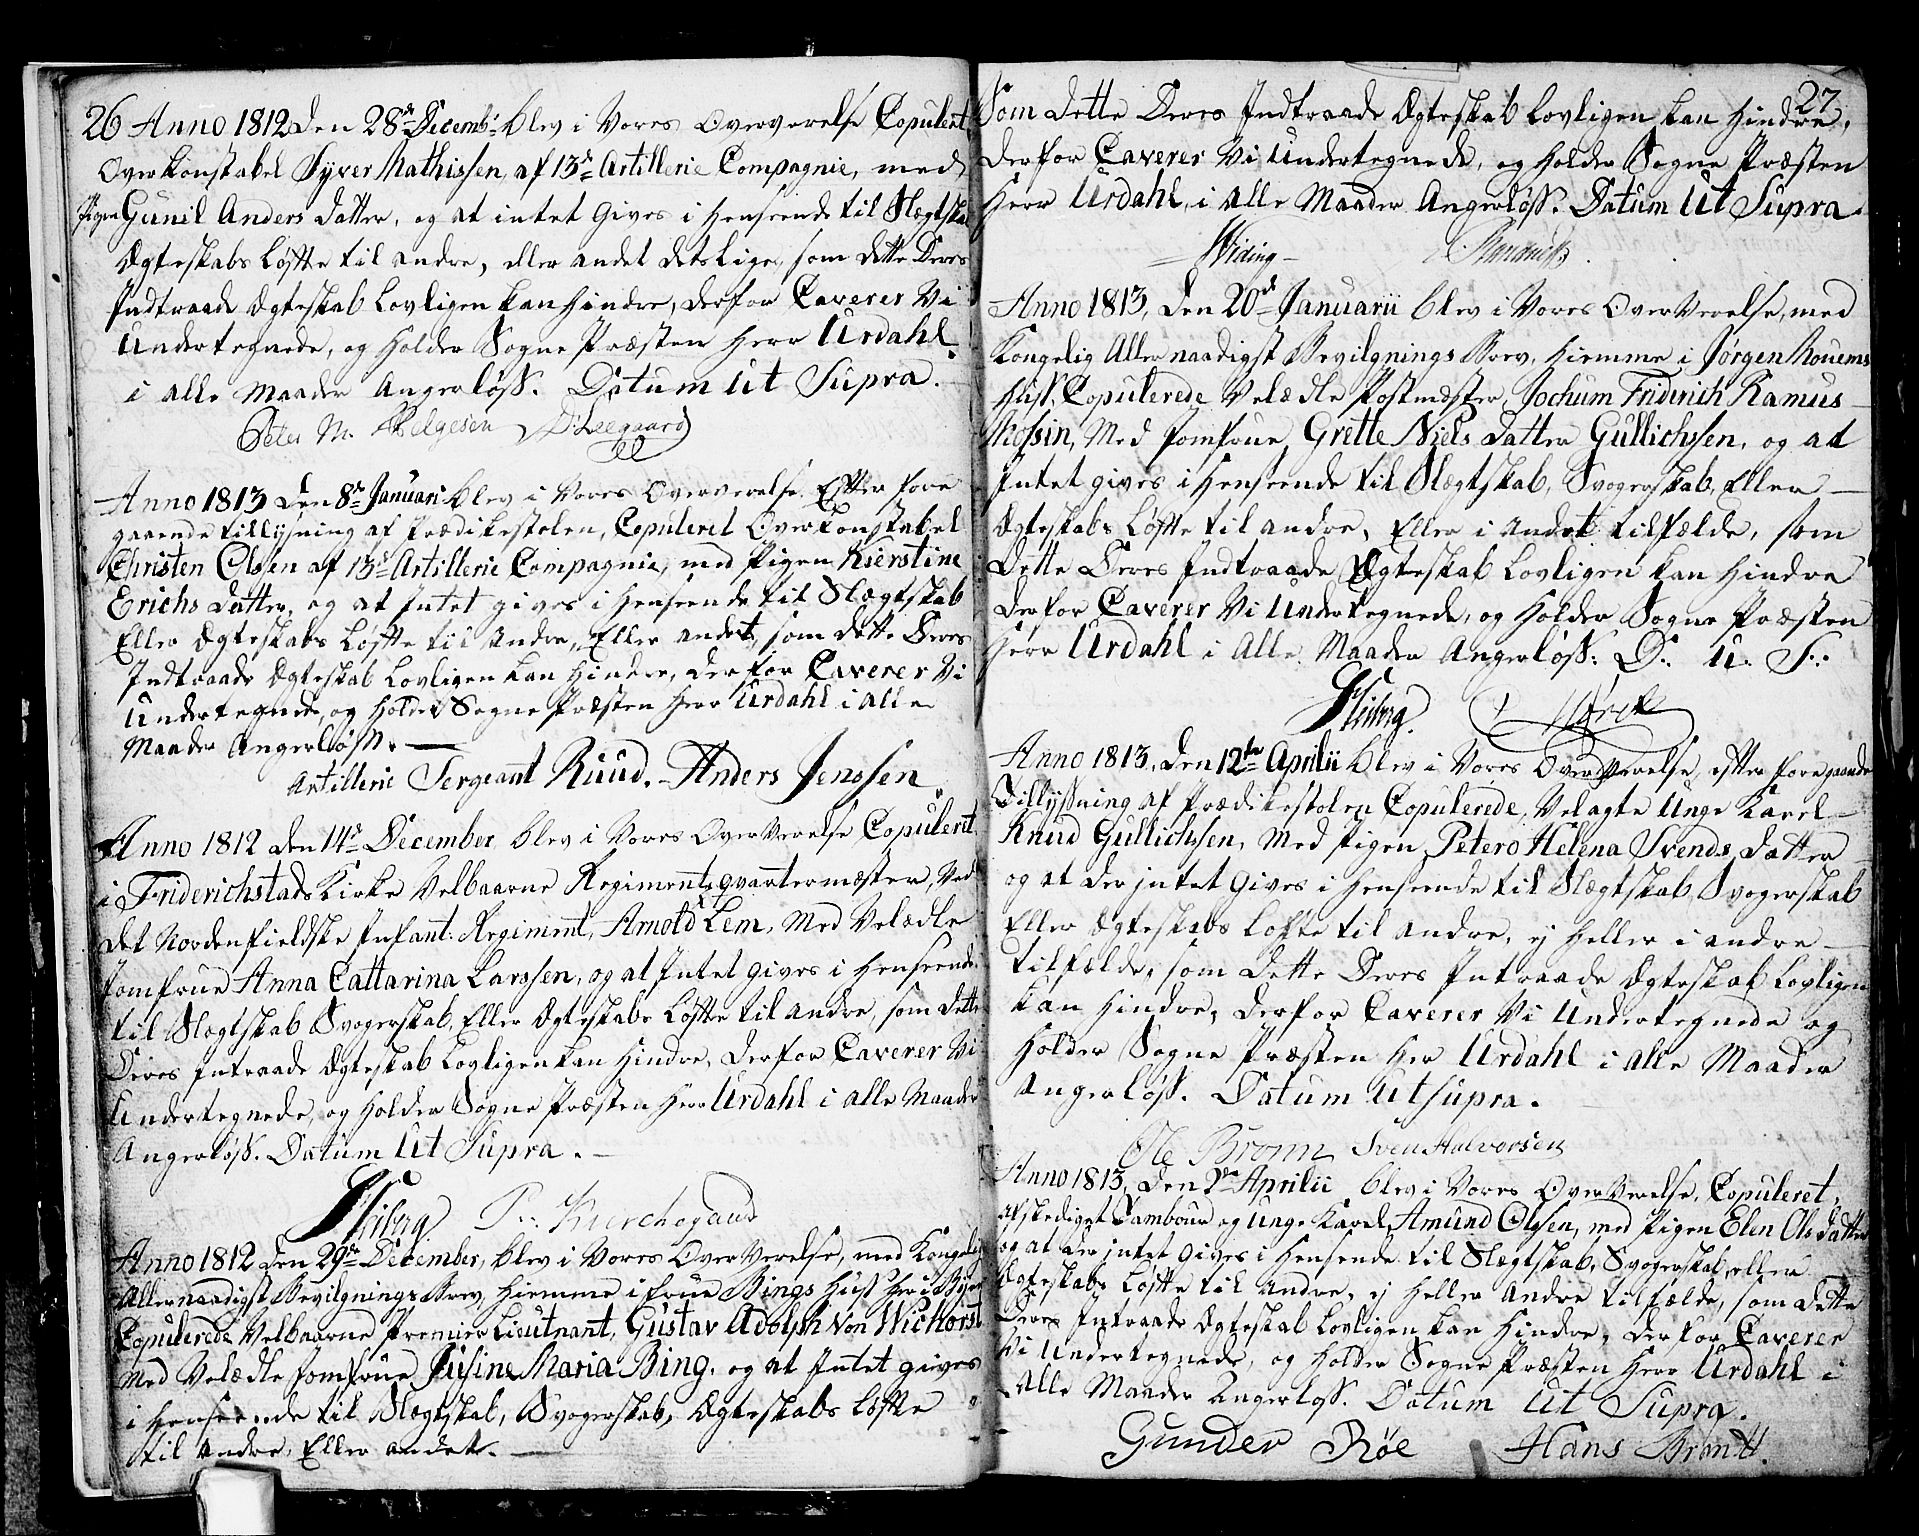 26 Anno 1812 den 28de Decembr blev i Vores Overværelse Copuleret
Overkonstabel Syver Mathissen, af 13de Artillerie Compagnie, med
Pigen Gunil Anders datter, og at intet Gives i henseende til Slægtskab
Ægteskabs Løfte til andre, eller andet detslige, som dette Deres
Indtraade Ægteskab Lovligen kan hindre, derfor Caverer Vi
Undertegnede, og holder Sogne Præsten Herr Urdahl
i alle Maader Angerløss. Datum Ut Supra.
Peter M. Helgesen D: Leegaard
Anno 1813 den 8de Januari blev i Vores Overværelse Efter fore
gaaende tillysning af Prædikestolen, Copuleret Overkonstabel
Christen Olsen af 13de Artillerie Compagnie, med Pigen Kierstine
Erichs datter, og at Intet gives i henseende til Slægtskab
Eller Ægteskabs Løfte til Andre, Eller andet, som dette Deres
Indtraade Ægteskab Lovligen kan hindre, derfor Caverer Vi
Undertegnede, og holder Sogne Præsten Herr Urdahl i alle
Maader Angerløss.
Artillerie Sergeant Ruud. Anders Jenssen.
Anno 1812 den 14de December, blev i Vores OverVerelse Copuleret
i Friderichstads Kirke Velbaarne Regiments qvarteermæster, Ved
det Nordenfieldske Infant: Regiment, Arnold Lem, Med Velædle
Jomfrue Anna Cattarina Larssen, og at Intet gives i henseende
til Slægtskab Svogerskab, Eller Ægteskabs Løfte til andre, som dette
Deres Intraade Ægteskab Lovligen kan hindre, derfor Caverer Vi
Undertegnede, og holder Sogne Præsten Herr Urdahl i alle Maader
Angerløss. Datum Ut Supra.
Heiberg P.
Anno 1812 den 29de December, blev i Vores OverVerelse, med Kongelig
Allernaadigst Bevilgnings Brev, hiemme i frue Bings Huus her i Byen
Copulerede Velbaarne Premier Lieutnant, Gustav Adolph Von Wichorst
Med Velædle Jomfrue Jusine Maria Bing, og at Intet gives
i henseende til Slægtskab, Svogerskab, Ægteskabs Løfte
til andre, Eller andet.
27
Som dette Deres Indtraade Ægteskab Lovligen kan hindre,
derfor Caverer Vi Undertegnede, og holder Sogne Præsten
Herr Urdahl, i alle Maader Angerløss. Datum Ut Supra.
Widing
Anno 1813, den 20de Januarii blev i Vores OverVerelse, med
Kongelig Aller naadigst Bevilgnings Brev, hiemme i Jørgen
Huss, Copulerede Velædle Postmester, Jochum Friderich Ramus
Med Jomfrue Grette Niels datter Gullichssen, og at
Intet gives i henseende til Slægtskab, Svogerskab, Eller
Ægteskabs Løfte til andre, Eller i andet tilfælde, som
dette Deres Indtraade Ægteskab Lovligen kan hindre
derfor Caverer Vi Undertegnede, og holder Sogne Præsten
Herr Urdahl i Alle Maader Angerløss. D: U: S:
Heiberg
Anno 1813, den 12te Aprilii blev i Vores Oververelse, efter foregaaende
Tillysning af Prædikestolen Copulerede, Velagte Unge Karl
Knud Gullichssen, Med Pigen Petero Helena Svends datter
og at der intet gives i henseende til Slægtskab, Svogerskab
Eller Ægteskabs Løfte til andre, ej heller i andre
tilfælde, som dette Deres Intraade Ægteskab Lovligen
kan hindre, derfor Caverer Vi Undertegnede og
holder Sogne Præsten Her Urdahl i Alle Maader
Angerløss. Datum Ut supra.
Ole Bronn Sven Halvorsen
Anno 1813, den Aprilii blev i Vores OverVerelse, Copuleret,
afskediget Tambour og Unge Karl, Amund Olssen, med Pigen Elen Ols datter
og at der intet gives i hensende til Slægtskab, Svogerskab, eller
Ægteskabs Løfte til Andre, ej heller Andre tilfælde, som dette
Deres Intraade Ægteskab Lovligen kan hindre, derfor Caverer
Vi Undertegnede, og holder Sogne Præsten Herr Urdahl i
Alle Maader Angerløss. Datum Ut Supra.
Gunder Røe Hans Brandt.